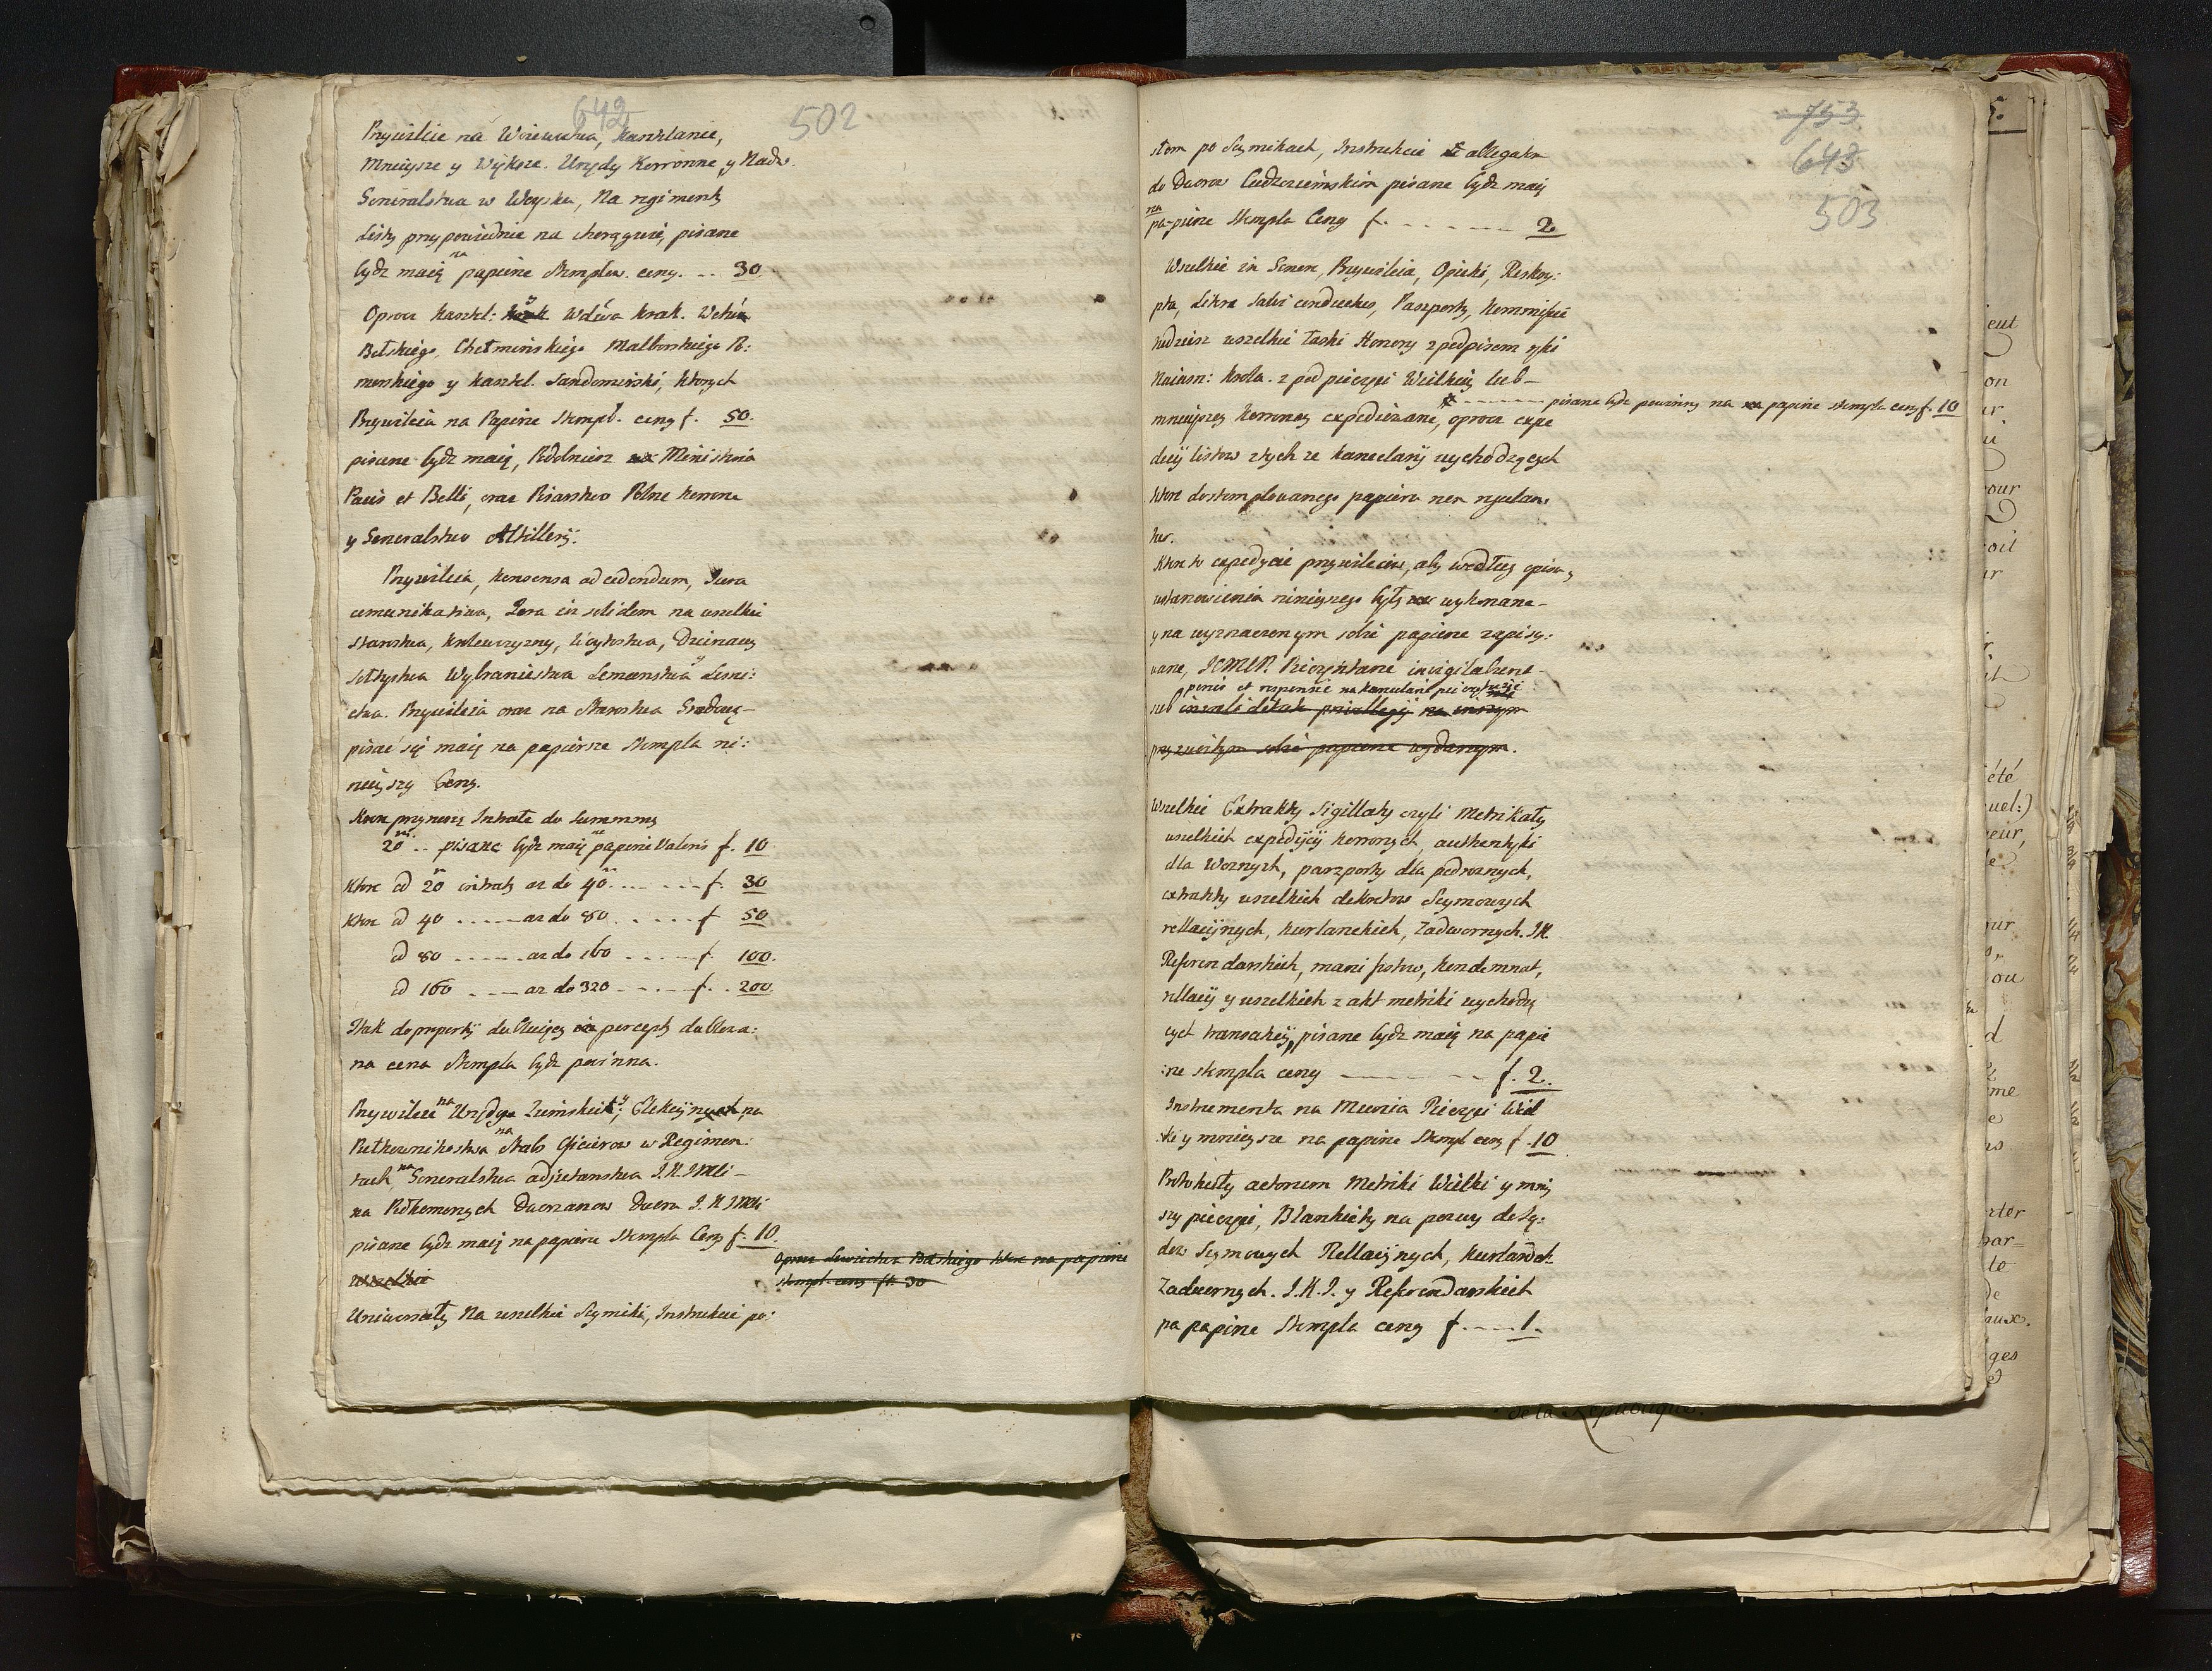 642
502
Przywileie na Woiewodztwa, Kasztelanie,
Mnieysze y Większe. Urzędy Koronne, y Nadw.
Generalstwa w Woysku, Na regimenty
Listy przypowiednie na chorągwie, pisane
bydz maią na papierze Stemplu. ceny. .. 30.
Oprocz Kasztel: Krak Wdźwa Krak. Wdźwa
Bełskiego, Chełmińskiego Malborskiego Po:
morskiego y Kasztel. Sandomirski, ktorych
Przywileia na Papierze Stempl. ceny f. 50.
pisane bydz maią, Podobniesz Ministeria
Pacis et Belli, oraz Pisarstwo Polne Koronne
y Generalstwo Artillerij.
Przywileia, Konsensa ad cedendum, Iura
comunikativa, Iura in solidum na wszelkie
Starostwa, Krolewszyzny, Woytostwa, Dzierzawy
Sołtystwa Wybraniestwa Lemanstwa y Lesni:
ctwa. Przywileia oraz na Starostwa Grodowe
pisać się maią na papierze Stempla ni:
nieyszy Ceny.
Ktore przynoszą Intratę do Summy
20 .. pisane bydz maią na papierze Valoris f. 10
Ktore od 20 intraty az do 40 . . . . . . f. 30
Ktore od 40 ........ az do 80 . . . . . f 50
od 80 ........ az do 160 . . . . . f. 100.
od 160 ..... az do 320 . . . . f. . 200
Itak do proporcij dubluiący percepty dublowa:
na cena Stempla bydz powinna.
Przywileie na Urzędy Ziemskie y Elekcijne, na
Pułkownikostwa na Stabs Oficierow w Regimen:
tach, na Generalstwa adjutanstwa J.K.Mci
na Pokoiowych Dworzanow Dworu J.K.Mci
pisane bydz maią na papierze Stempla Ceny f. 10.
Oprocz Bełskiego ktore na papierze
stempl ceny fl. 30
wszelkie
Uniwersały Na wszelkie Seymiki, Instrukcie po:
753
643
503
słom po Seymikach, Instrukcie allegatom
do Dworow Cudzoziemskich pisane bydz maią
na pa-pierze Stempla Ceny f. . . . . . . . . 2.
Wszelkie in Genere, Przywileia, Opieki, Reskry:
pta, Litere Salvi conductus, Paszporty, Kommissie
tudziesz wszelkie Łaski Honory z podpisem ręki
Naiasn: Krola. z pod pieczęci Wielkiey lub
pisane bydz powinny na papierze stempla ceny f. 10
mnieyszey Koronney expediowane, oprocz expe
dicij listow z tych ze Kancelarij wychodzących
ktore do stemplowanego papieru non regulan:
tur.
Ktore to expedycie przywileiow, aby według opisu y
ustanowienia ninieyszego były wykonane
y na wyznaczonym sobie papierze zapisy:
wane, JCMCP. Pieczętarze invigilabunt
sub penis et responsie na Kancelarie pieczętarzie
przyzwoitym sobie papierze wydanym.
Wszelkie Extrakty Sigillaty czyli Metrikaty
wszelkich expedijcij Koronnych, authentyki
dla Woznych, paszporty dla podroznych,
extrakty wszelkich dekretow Seymowych
rellacijnych, Kurlanckich, Zadwornych. J.K.
Referendarskich, manifestow, Kondemnat,
rellacij y wszelkich z akt metriki wychodzą
cych transakcij, pisane bydz maią na papie
:rze stempla ceny . . . . . . f. 2.
Instrumenta na Munia Pieczęci Wiel
:kiey mnieysze na papierze Stempl ceny f .10
Protokuły actorum Metriki Wielki y mniey
szy pieczęci, Blankiety na pozwy do Są:
dow Seymowych Rellacijnych, Kurlandz
Zadwornych. J.K.J. y Referendarskich
na papierze Stempla ceny f. . . . 1.